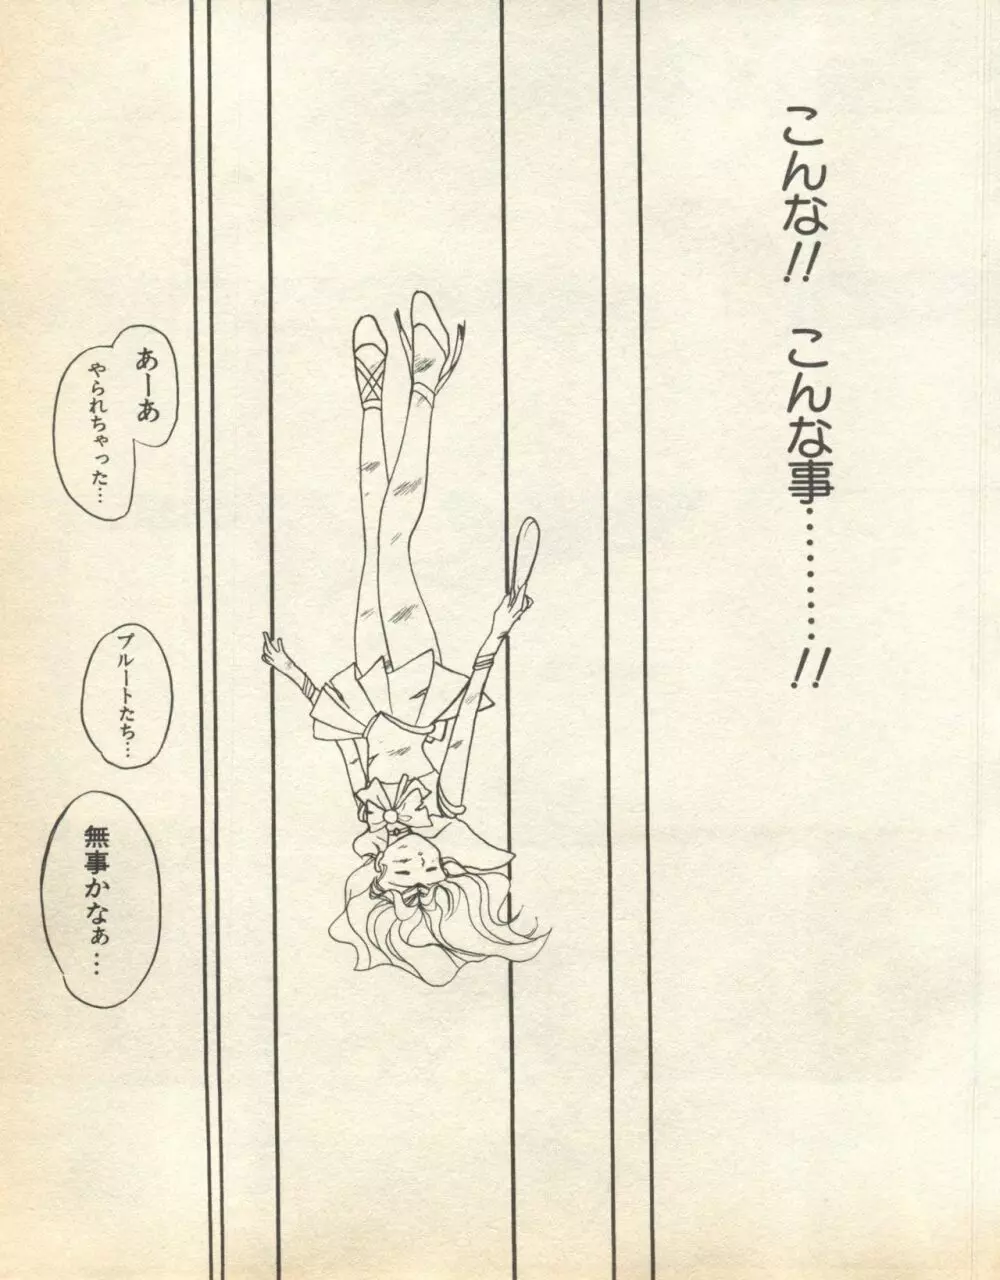 こんな!!
こんな事………!!
あーあ
やられちゃった…
プルートたち…
無事かなぁ…